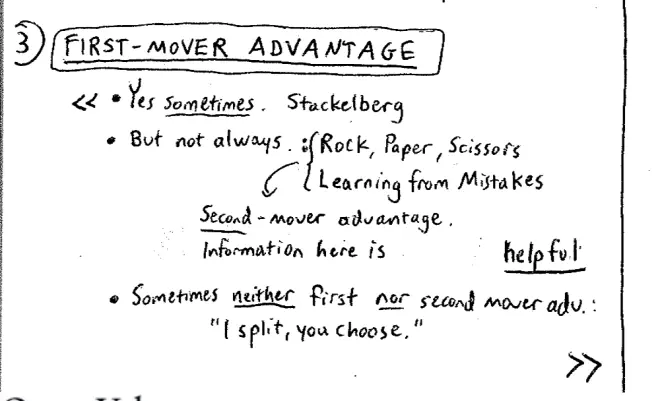 3) FIRST-MOVER ADVANTAGE
<< • Yes sometimes. Stackelberg
• But not always. : { Rock, Paper, Scissors
Learning from Mistakes
Second-mover advantage.
Information here is helpful
• Sometimes neither first nor second mover adv.:
"I split, you choose."
>>